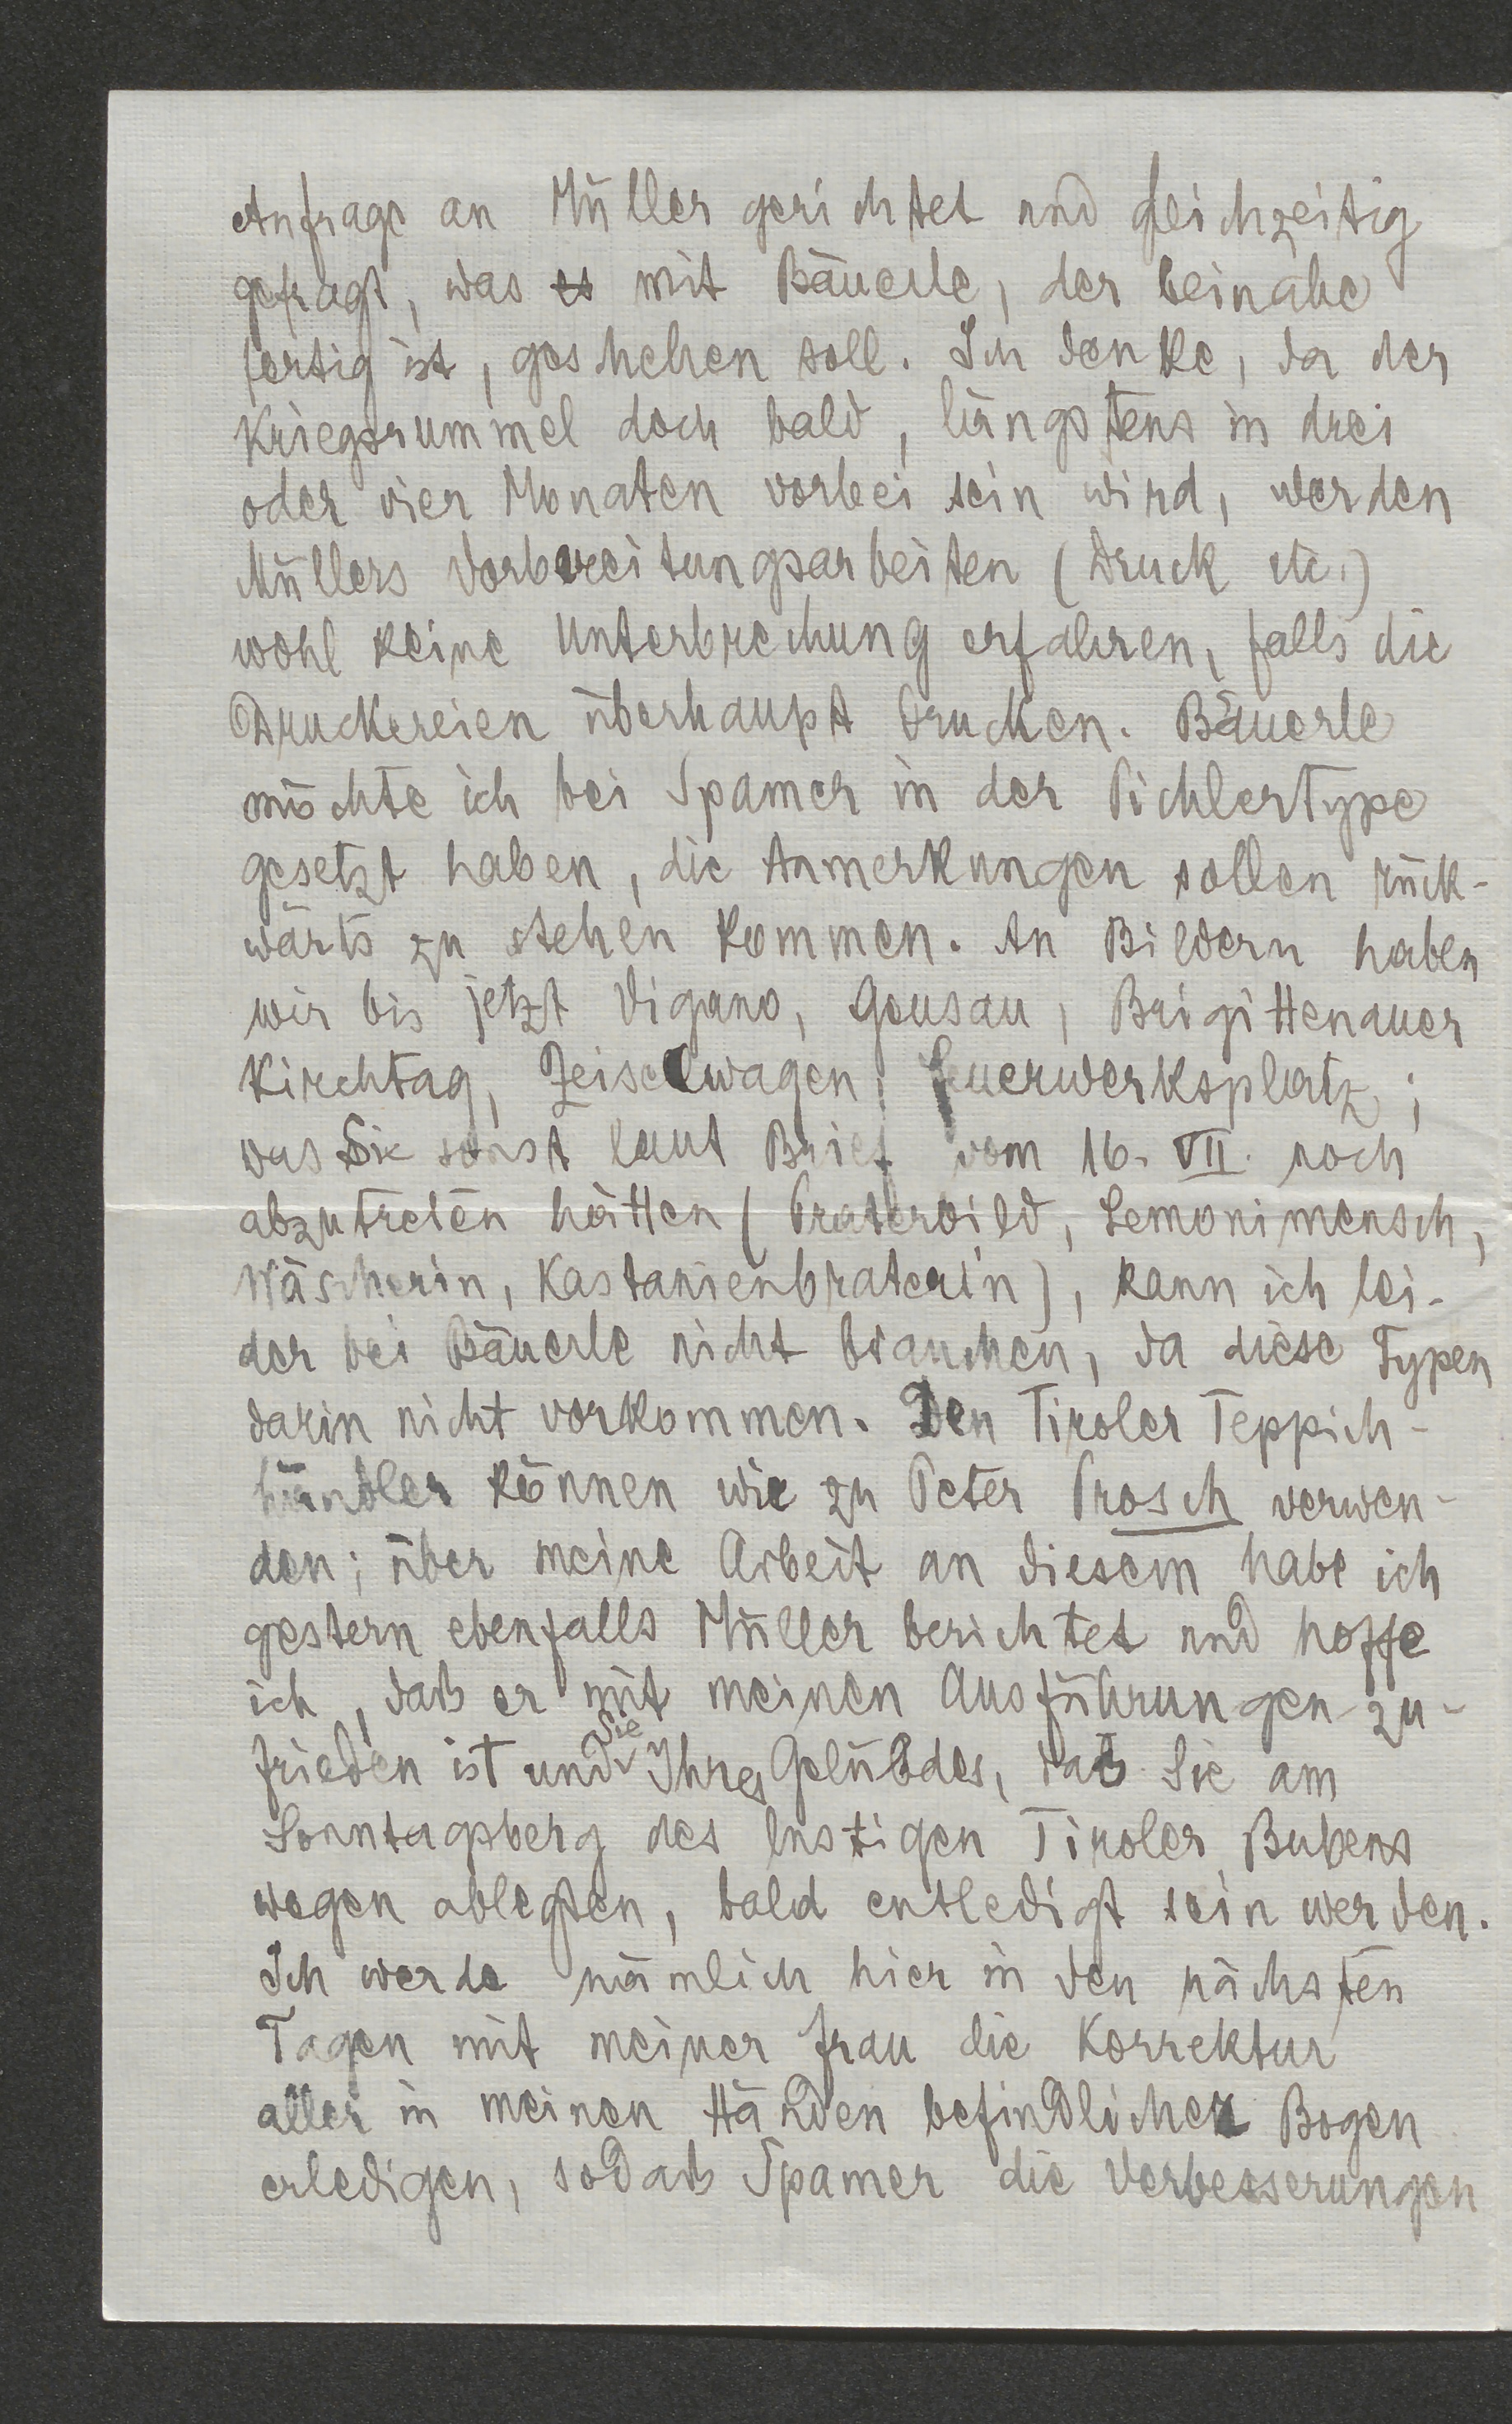 Anfrage an Müller gerichtet und gleichzeitig
gefragt, was es mit Bäuerle, der beinahe
fertig ist, geschehen soll. Ich denke, da der
Kriegsrummel doch bald, längstens in drei
oder vier Monaten vorbei sein wird, werden
Müllers Vorbereitungsarbeiten (Druck etc.)
wohl keine Unterbrechung erfahren, falls die
Druckereien überhaupt drucken. Bäuerle
möchte ich bei Spamer in der Pichlertype
gesetzt haben, die Anmerkungen sollen rück-
wärts zu stehen kommen. An Bildern haben
wir bis jetzt Vigano, Gousau, Brigittenauer
Kirchtag, Zeiselwagen, Feuerwerksplatz;
was Sie sonst laut Brief vom 16. VII. noch
abzutreten hätten (Praterbild, Lemonimensch,
Wäscherin, Kastanienbraterin), kann ich lei-
der bei Bäuerle nicht brauchen, da diese Typen
darin nicht vorkommen. Den Tiroler Teppich-
händler können wir zu Peter Prosch verwen-
den; über meine Arbeit an diesem habe ich
gestern ebenfalls Müller berichtet und hoffe
ich, daß er mit meinen Ausführungen zu-
frieden ist und Sie Ihres Gelübdes, daß Sie am
Sonntagsberg des lustigen Tiroler Bubens
wegen ablegten, bald entledigt sein werden.
Ich werde nämlich hier in den nächsten
Tagen mit meiner Frau die Korrektur
aller in meinen Händen befindlicher Bogen
erledigen, sodaß Spamer die Verbesserungen